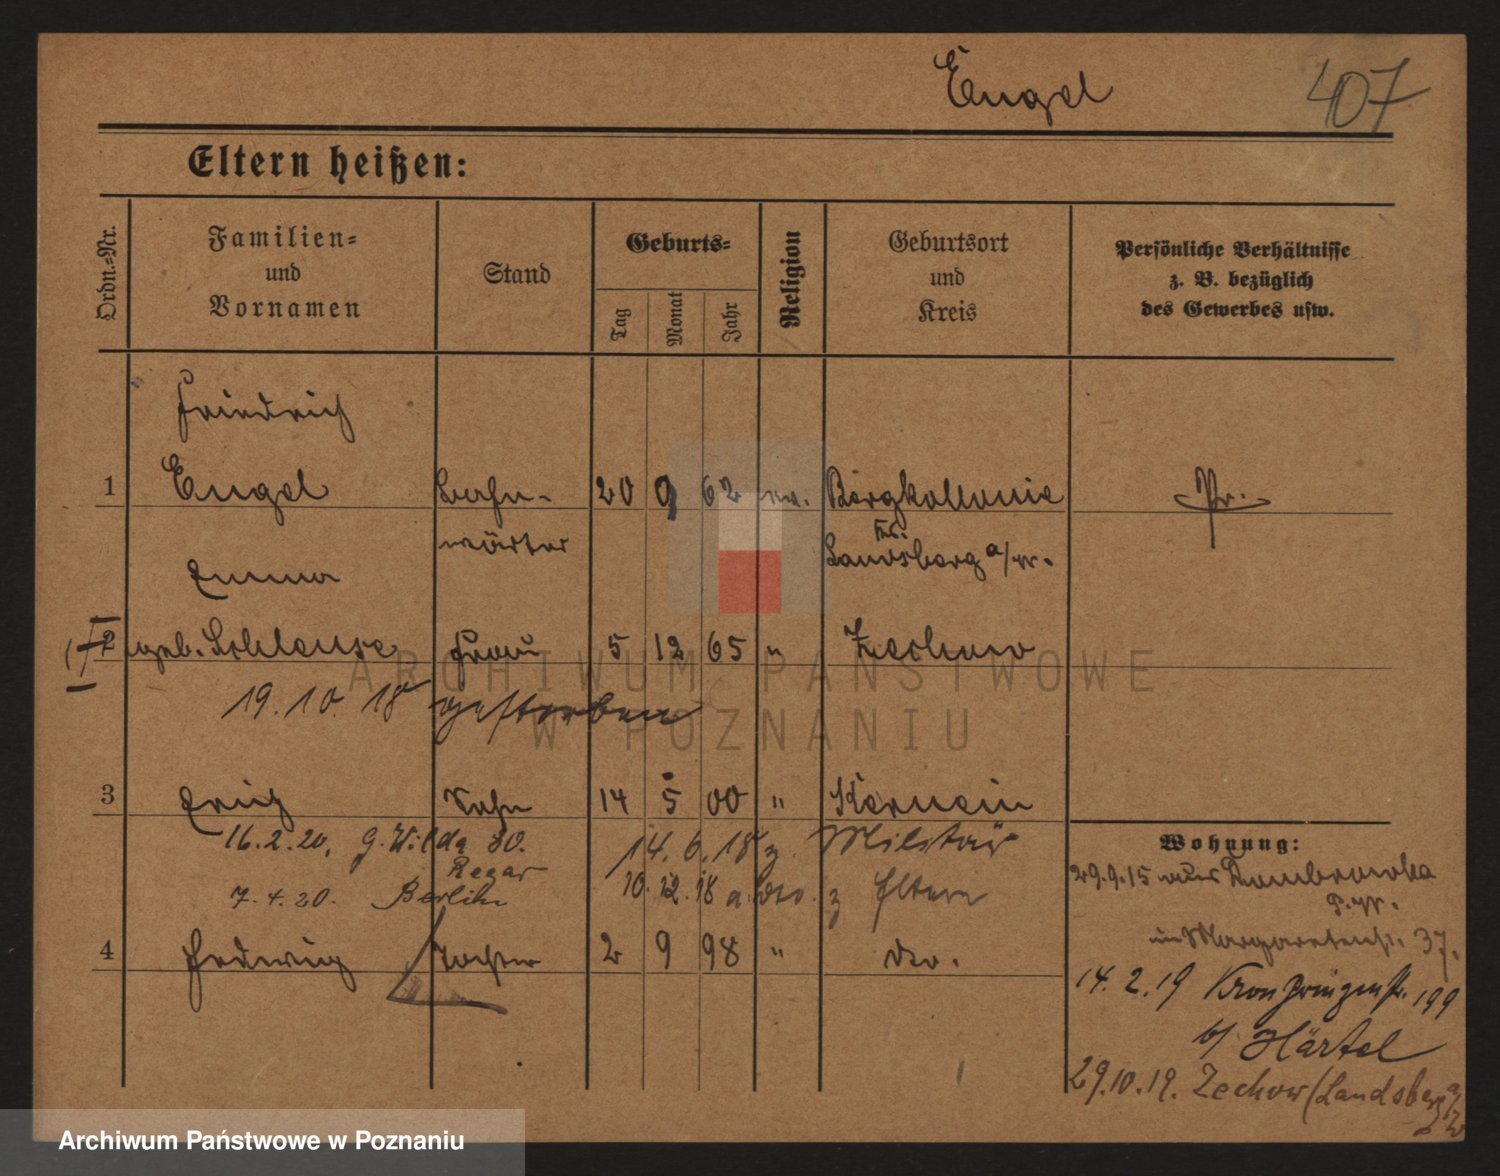 Engel 407
Eltern heißen:
Ordn.=Nr.
Familien=
und
Vornamen
Stand
Geburts=
Tag
Monat
Jahr
Religion
Geburtsort
und
Kreis
Persönliche Verhältnisse
z. B. bezüglich
des Gewerbes usw.
Friedrich
1 Engel Bahn- 20 9 62 ev. Bergkollonie Pr.
wärter Krs. Landsberg a/W.
Emma
2 geb. Schlense Frau 5 12 65 " Zechow
19.10.18 gestorben
3 Erich Sohn 14 5 00 " Kernein
16.2.20. G. Wilda 80. 14.6.18 z. Militär
Regar
7.4.20. Berlin 10.12.18 a. dto. z Eltern
4 Hedwig Tochter 2 9 98 " dto.
Wohnung:
29.9.15 aus Dombrowka
P.W.
in Margaretenstr. 37.
14.2.19 Kronprinzenstr. 199
b/ Härtel
29.10.19. Zechow (Landsberg a/W
ARCHIWUM PAŃSTWOWE
W POZNANIU
Archiwum Państwowe w Poznaniu